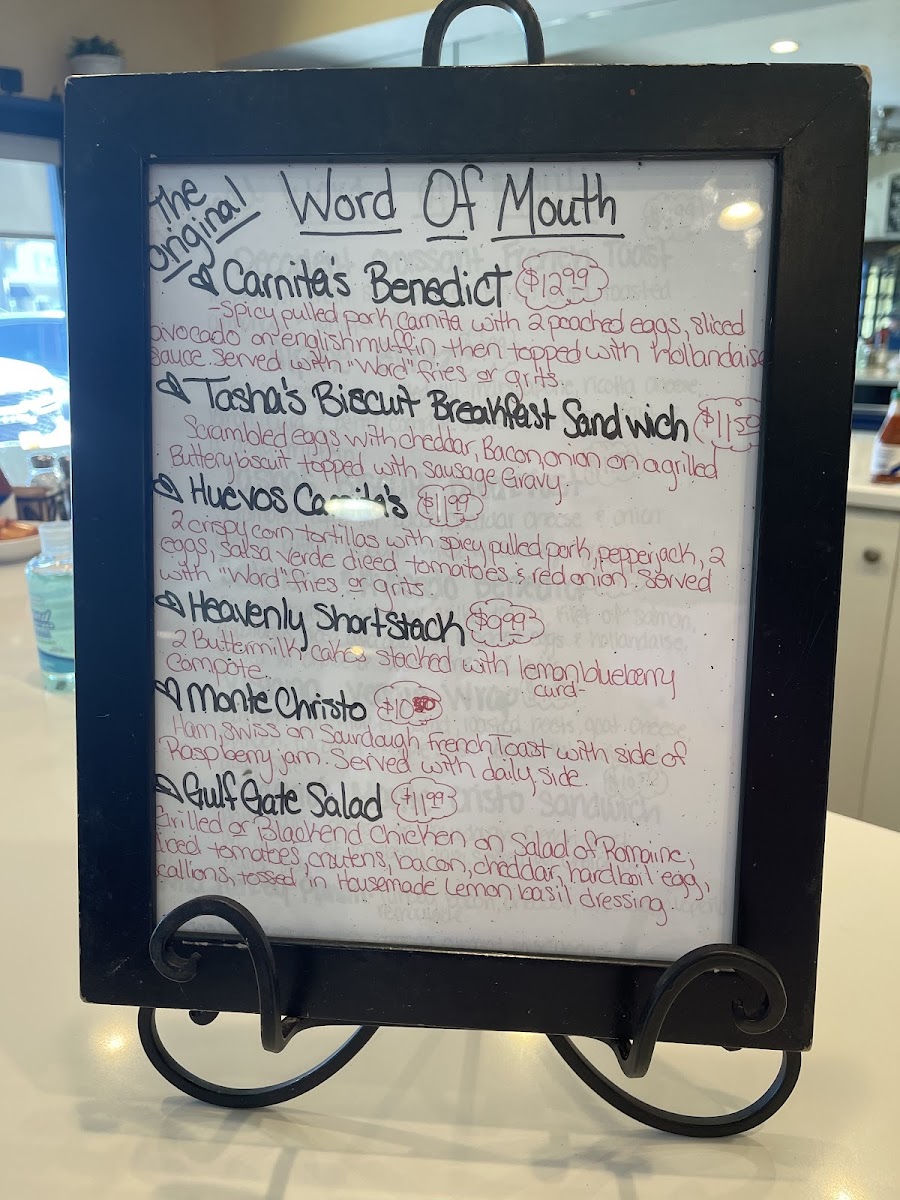 The original
Word Of Mouth
Carnita's Benedict $12.99
-Spicy pulled pork carnita with 2 poached eggs, sliced
avocado on english muffin, then topped with Hollandaise
sauce. Served with "Word" fries or grits.
Tasha's Biscuit Breakfast Sandwich $11.50
Scrambled eggs with cheddar, Bacon, onion on a grilled
Buttery biscuit topped with sausage Gravy.
Huevos Carnita's $11.99
2 crispy corn tortillas with spicy pulled pork, pepperjack, 2
eggs, salsa verde diced tomatoes & red onion. Served
with "Word" fries or grits.
Heavenly Shortstack $9.99
2 Buttermilk cakes stacked with lemon blueberry
curd-
Compote.
Monte Christo $10.50
Ham, swiss on Sourdough French Toast with side of
Raspberry jam. Served with daily side.
Gulf Gate Salad $11.99
Grilled or Blackend Chicken on Salad of Romaine,
diced tomatoes, crutens, bacon, cheddar, hardboil egg,
scallions, tossed in Housemade Lemon basil dressing.